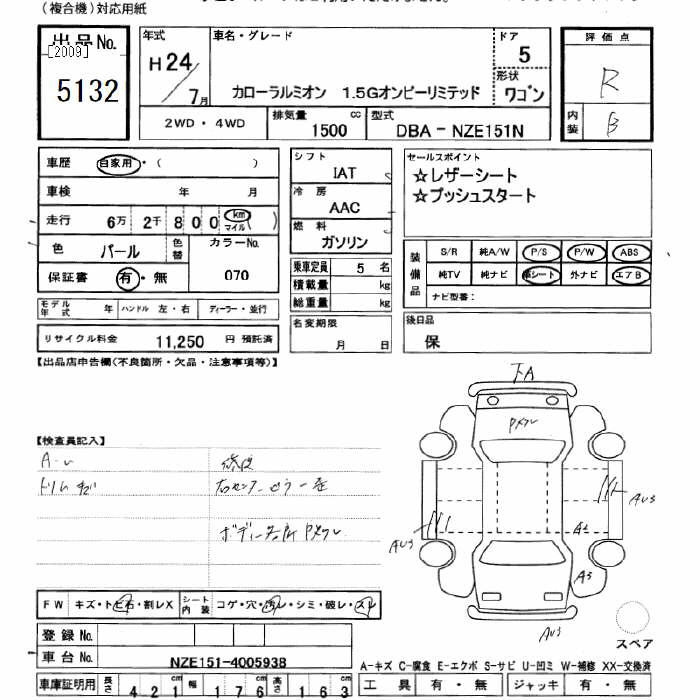 (複合機)対応用紙
出品No.
[2009]
5132
年式
H24/7月
車名・グレード
カローラルミオン 1.5Gオンビーリミテッド
ドア
5
形状
ワゴン
評価点
R
内装
B
2WD・4WD
排気量
1500
cc
型式
DBA－NZE151N
車歴
自家用・( )
車検 年 月
走行 6万 2千 800 km マイル
色 パール 色替 カラーNo. 070
保証書 有・無
モデル年式 年 ハンドル 左・右 ディーラー・並行
リサイクル料金 11,250 円 預託済
シフト
IAT
冷房
AAC
燃料
ガソリン
乗車定員 5 名
積載量 kg
総重量 kg
名変期限
月 日
セールスポイント
☆レザーシート
☆プッシュスタート
装備品
S/R 純A/W P/S P/W ABS
純TV 純ナビ 革シート 外ナビ エアB
ナビ型番:
後日品
保
【出品店申告欄(不良箇所・欠品・注意事項等)】
【検査員記入】
A-レ
修復
ボディー各所 Pメクレ
下A
Pメクレ
AUS
AUS
A2
A3
AUS
FW キズ・トビ石・割レX シート内装 コゲ・穴・汚レ・シミ・破レ・スレ
登録No.
車台No. NZE151-4005938
車庫証明用 長さ 421cm 幅 176cm 高さ 163cm
スペア
A-キズ C-腐食 E-エクボ S-サビ U-凹ミ W-補修 XX-交換済
工具 有・無 ジャッキ 有・無